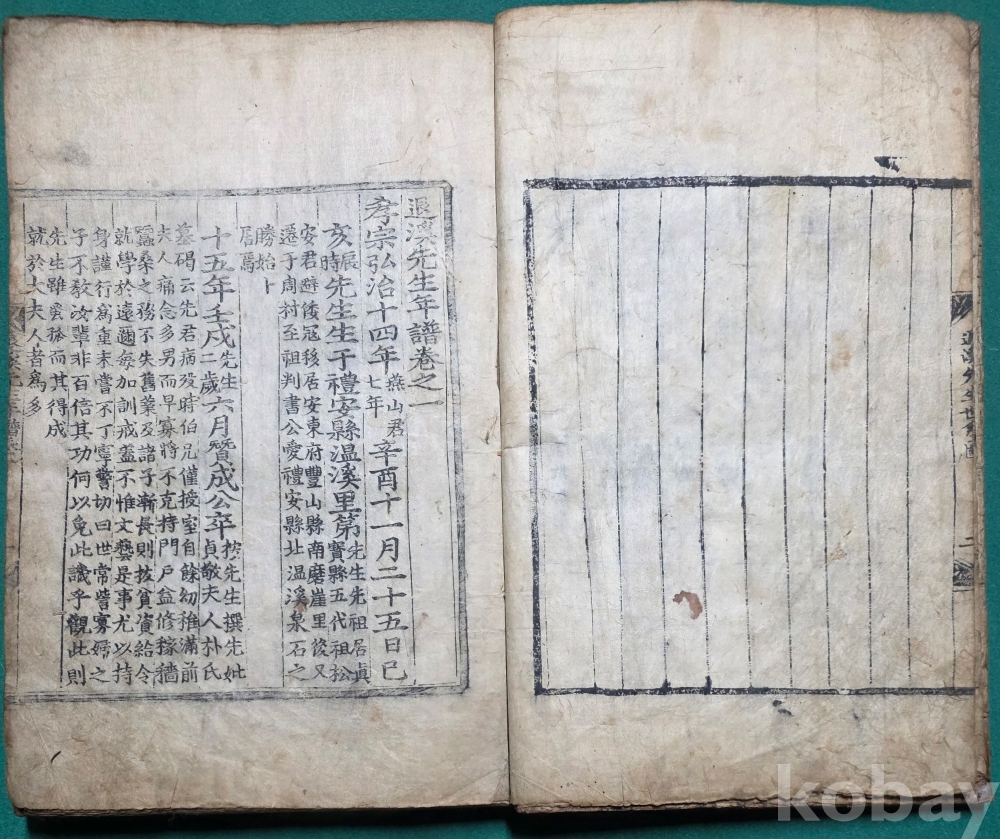 退溪先生世系圖 二
退溪先生年譜卷之一
孝宗弘治十四年燕山君七年辛酉十一月二十五日己
亥辰時先生生于禮安縣温溪里第先生先祖居眞寶縣五代祖松
安君避倭寇移居安東府豐山縣南磨崖里後又
遷于周村至祖判書公愛禮安縣北温溪泉石之
勝始卜
居焉
十五年壬戌先生二歲六月贊成公卒按先生撰先妣貞敬夫人朴氏
墓碣云先君病歿時伯兄僅授室自餘幼稚滿前
夫人痛念多男而早寡將不克持門戶益修稼穡
蠶桑之務不失舊業及諸子漸長則拔貧資給令
就學於遠邇每加訓戒盖不惟文藝是事尤以持
身謹行爲重未嘗不丁寧警切曰世常訾寡婦之
子不敎汝輩非百倍其功何以免此譏乎觀此則
先生雖蚤孤而其得成
就於大夫人者爲多
kobay